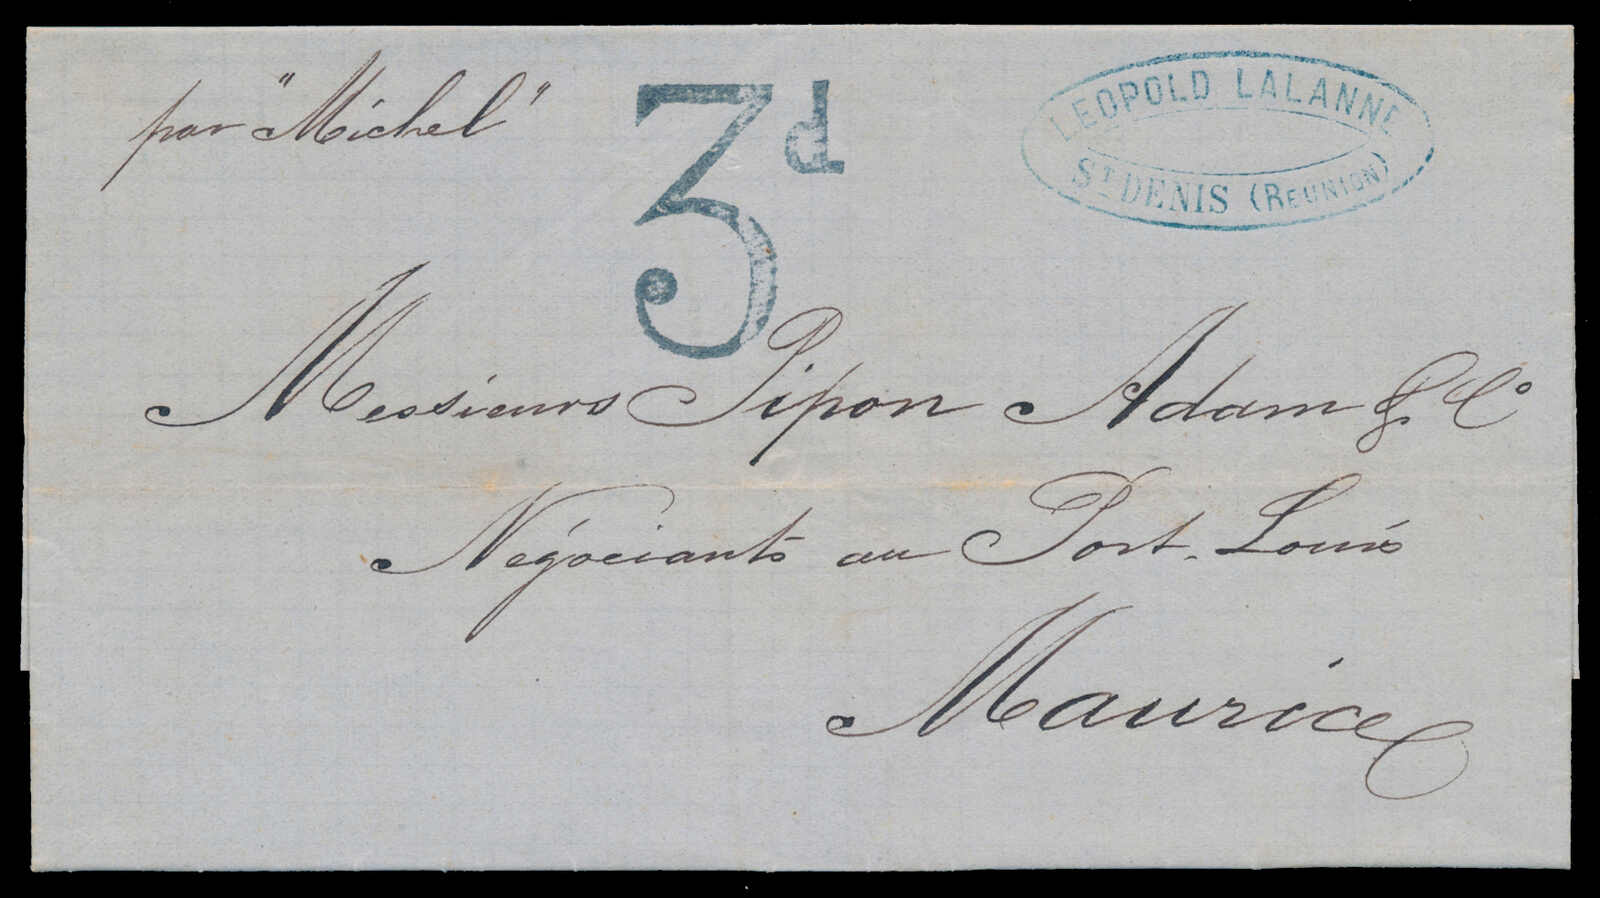 par "Michel"
3d
LEOPOLD LALANNE
ST DENIS (REUNION)
Messieurs Pipon Adam & Co
Négociants au Port-Louis
Maurice